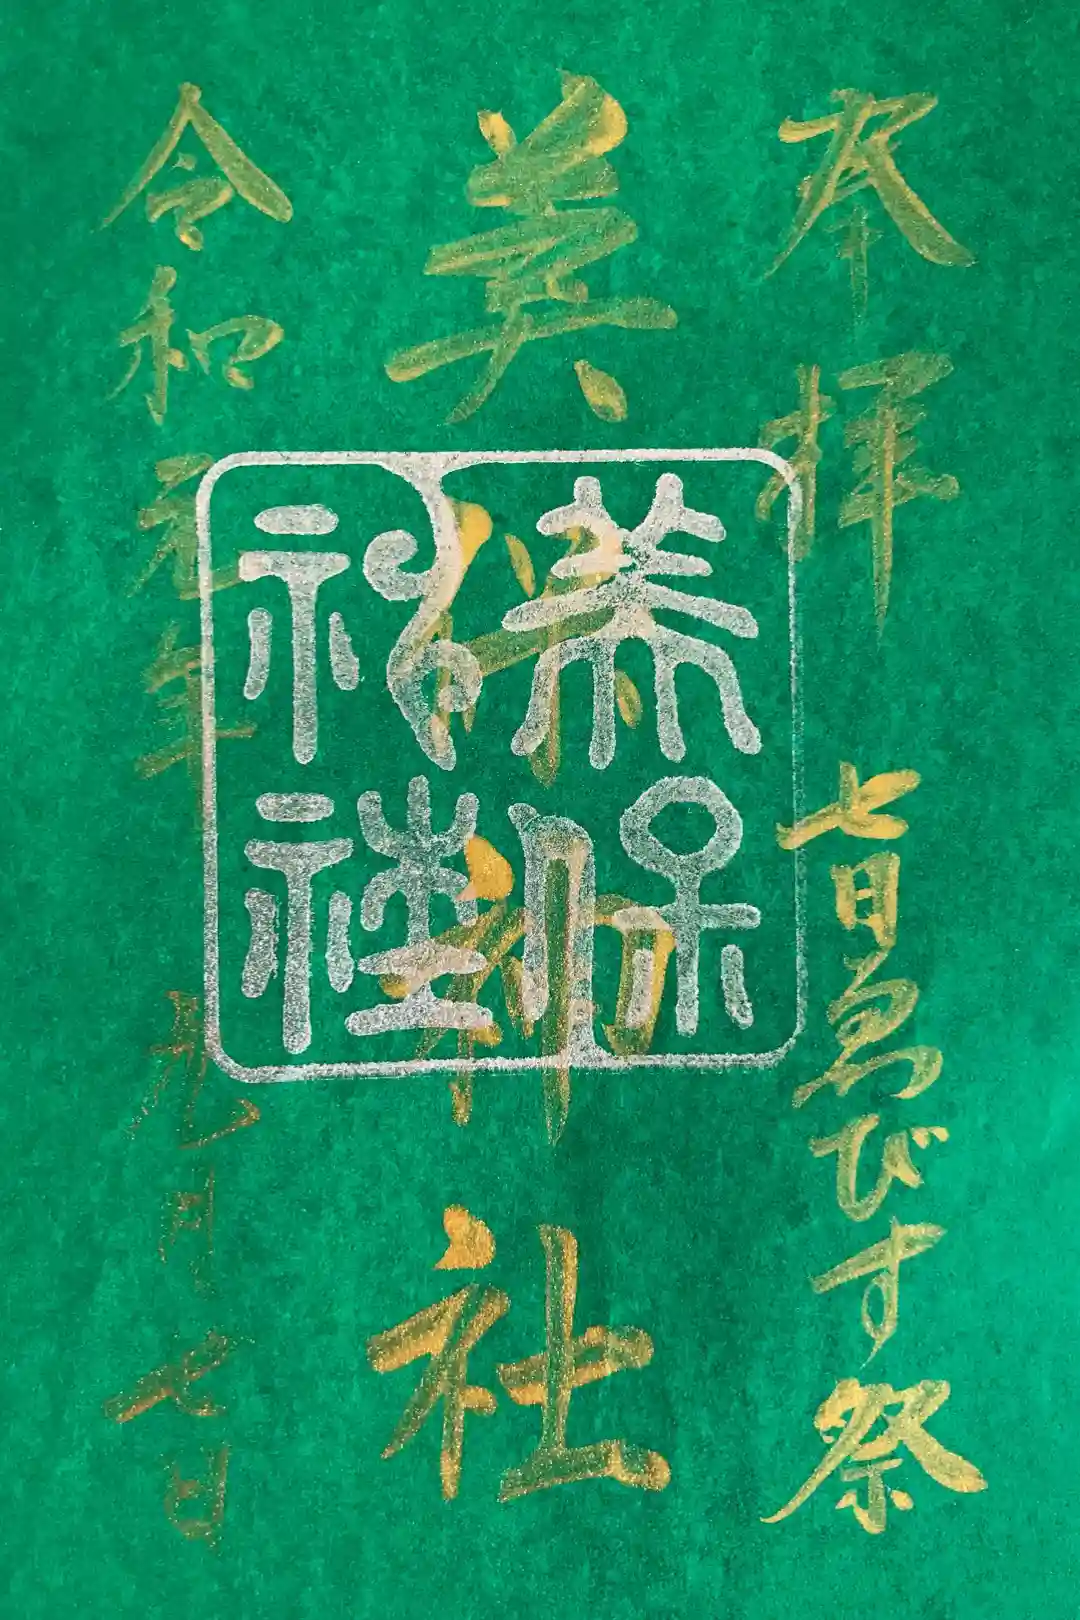 奉拝
七日ゑびす祭
美保神社
美保
神社
令和元年
九月七日